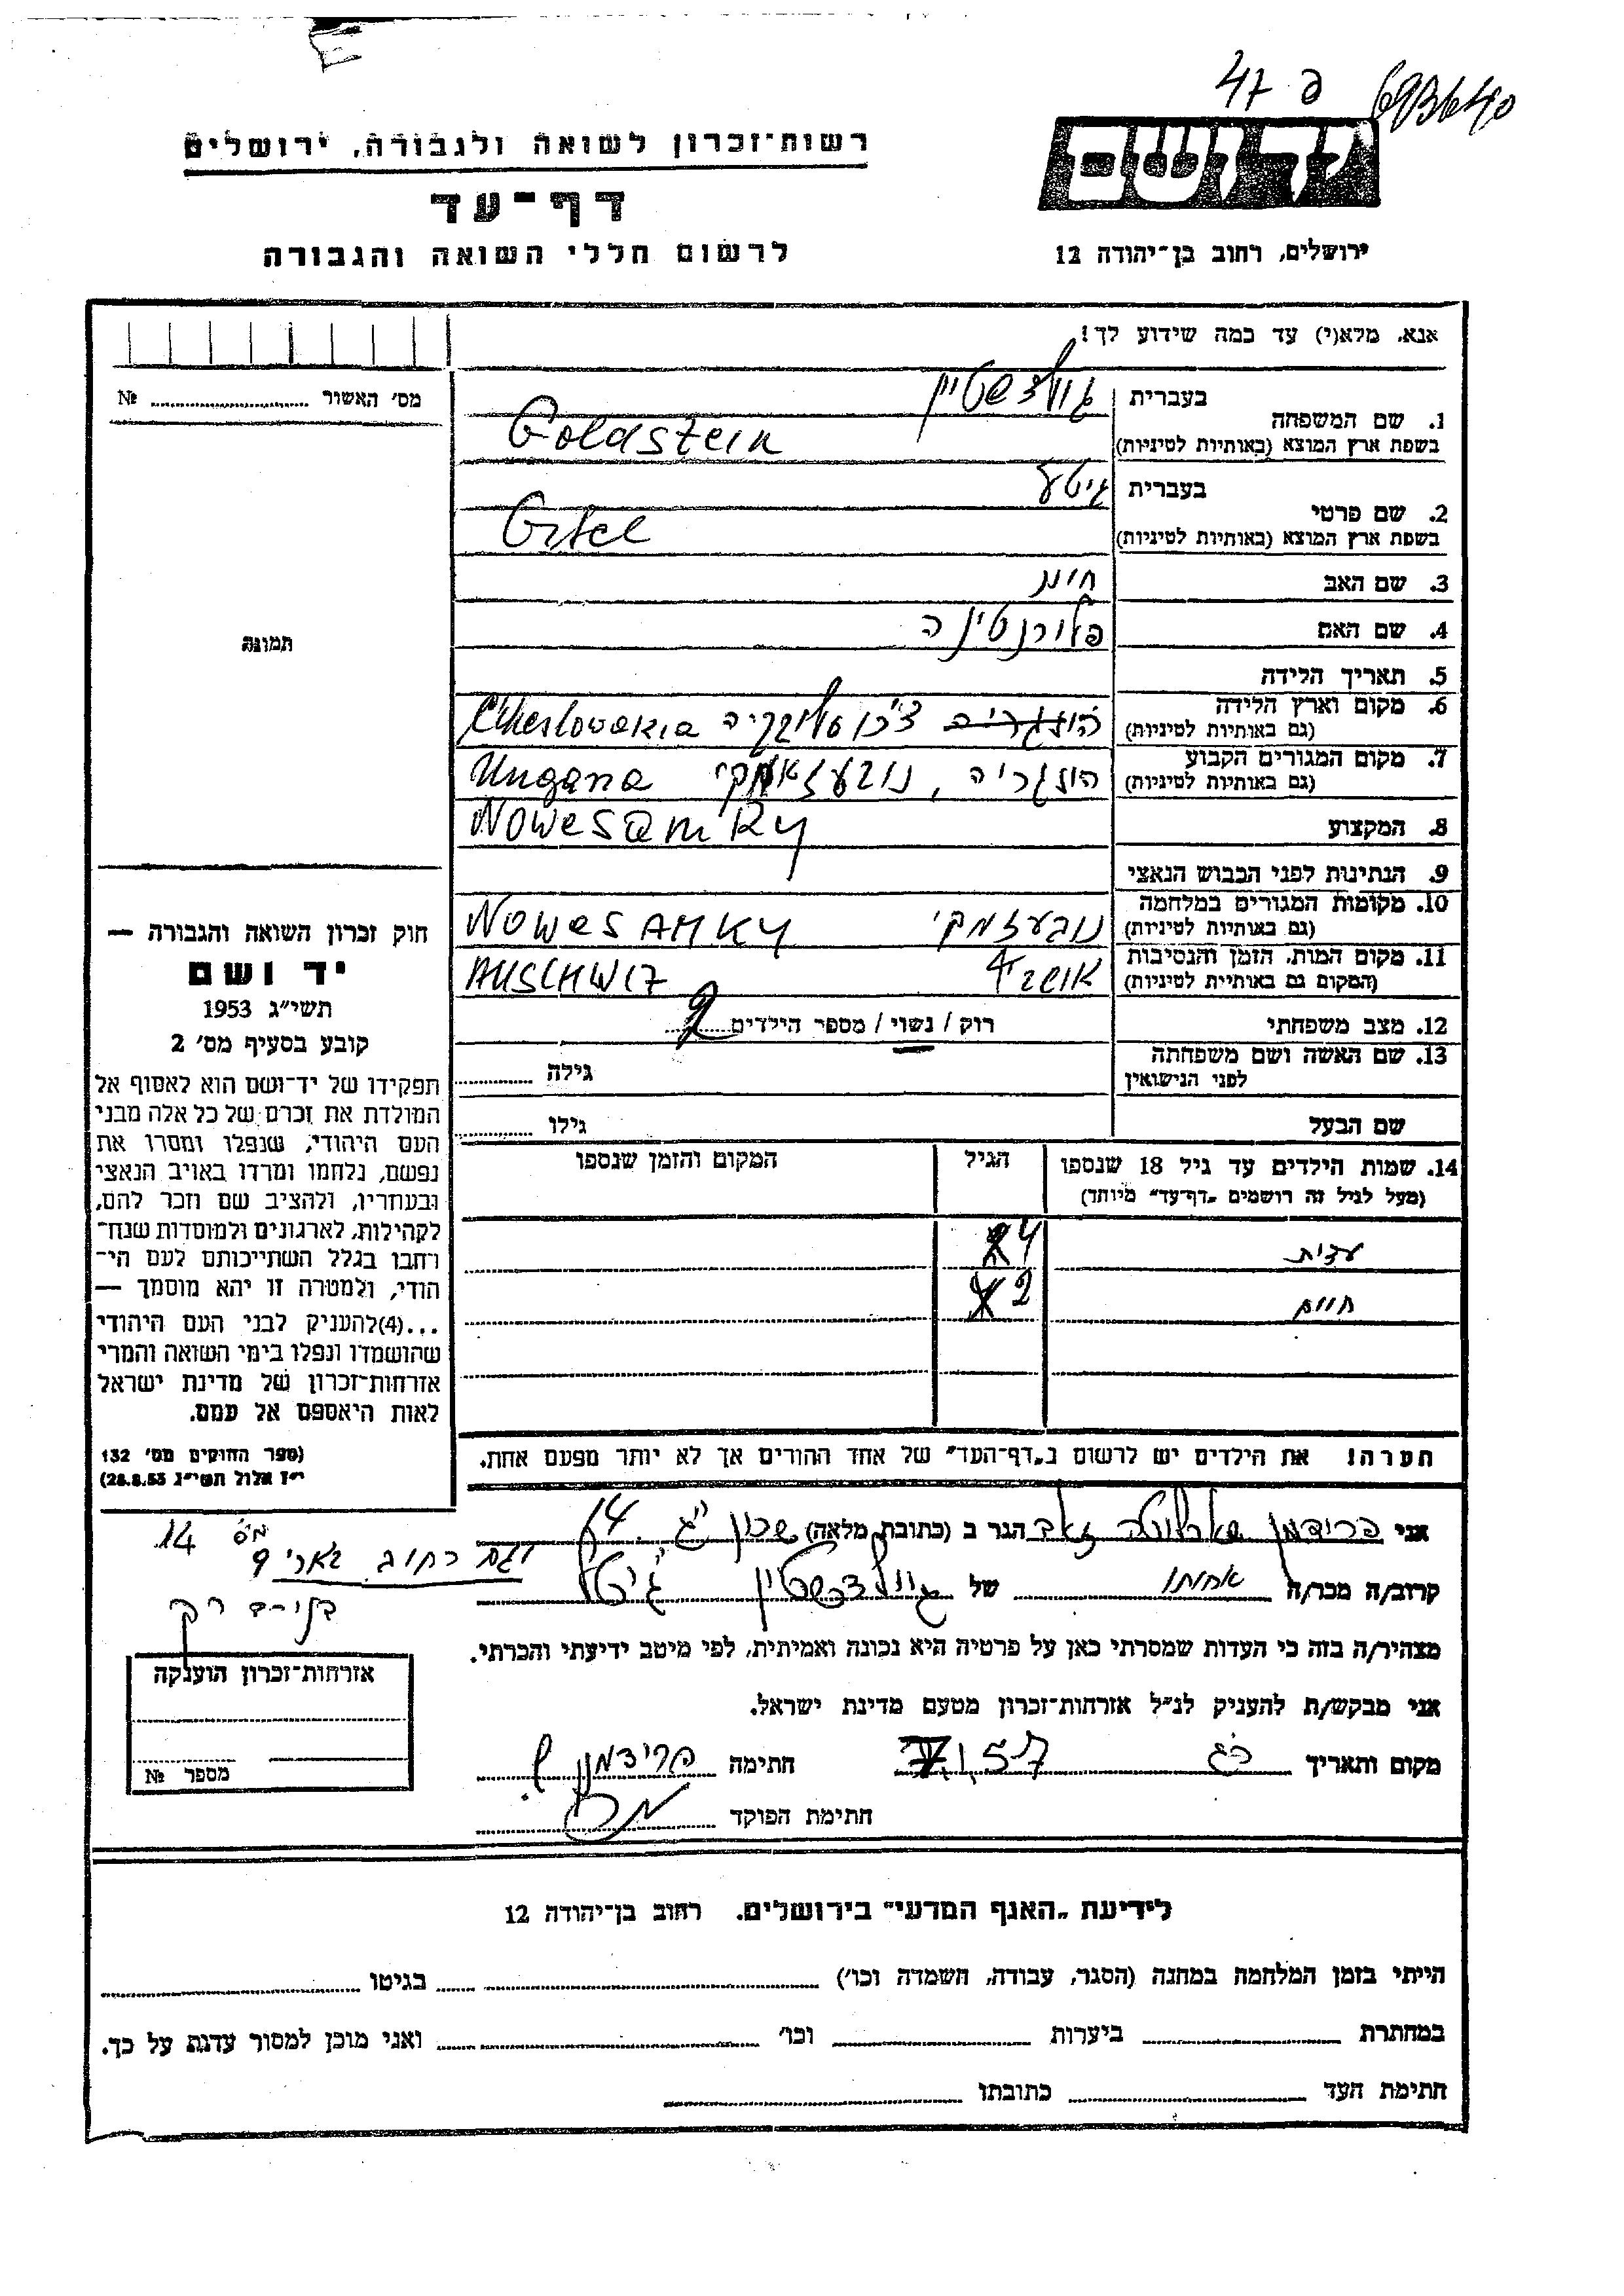 47 פ 693640
רשות־זכרון לשואה ולגבורה, ירושלים
יד ושם
דף־עד
לרשום חללי השואה והגבורה
ירושלים, רחוב בן־יהודה 12
אנא, מלא(י) עד כמה שידוע לך!
מס' האשור № 
1. שם המשפחה בעברית גולדשטיין
בשפת ארץ המוצא (באותיות לטיניות) Goldstein
2. שם פרטי בעברית גיטל
בשפת ארץ המוצא (באותיות לטיניות) Gitel
3. שם האב
4. שם האם פלורנטינה
5. תאריך הלידה
6. מקום וארץ הלידה (גם באותיות לטיניות) הונגריה צ'כוסלובקיה Chheslovakia
7. מקום המגורים הקבוע (גם באותיות לטיניות) הונגריה, נובעזאמקי Ungaria
Nowesamky
8. המקצוע
9. הנתינות לפני הכבוש הנאצי
10. מקומות המגורים במלחמה (גם באותיות לטיניות) נובעזמקי NOWESAMKY
11. מקום המות, הזמן והנסיבות (המקום גם באותיות לטיניות) אושביץ AUSCHWIZ
12. מצב משפחתי רוק / נשוי / מספר הילדים 2
13. שם האשה ושם משפחתה לפני הנישואין גילה
שם הבעל גילו
14. שמות הילדים עד גיל 18 שנספו הגיל המקום והזמן שנספו
(מעל לגיל זה רושמים "דף־עד" מיוחד)
עדית 4
חיים 2
הערה! את הילדים יש לרשום ב"דף־העד" של אחד ההורים אך לא יותר מפעם אחת.
תמונה
חוק זכרון השואה והגבורה —
יד ושם
תשי"ג 1953
קובע בסעיף מס' 2
תפקידו של יד־ושם הוא לאסוף אל
המולדת את זכרם של כל אלה מבני
העם היהודי, שנפלו ומסרו את
נפשם, נלחמו ומרדו באויב הנאצי
ובעוזריו, ולהציב שם וזכר להם,
לקהילות, לארגונים ולמוסדות שנח־
רבו בגלל השתייכותם לעם הי־
הודי, ולמטרה זו יהא מוסמך —
...(4)להעניק לבני העם היהודי
שהושמדו ונפלו בימי השואה והמרי
אזרחות־זכרון של מדינת ישראל
לאות היאספם אל עמם.
(ספר החוקים מס' 132
י"ז אלול תשי"ג 28.8.53)
אני פרידמן שארלוטה זאב הגר ב (כתובת מלאה) שכון 14
מס 14
רחוב 9
קרוב/ה מכר/ה אחותו של גולדשטיין גיטל
בני־ברק
מצהיר/ה בזה כי העדות שמסרתי כאן על פרטיה היא נכונה ואמיתית, לפי מיטב ידיעתי והכרתי.
אני מבקש/ת להעניק לנ"ל אזרחות־זכרון מטעם מדינת ישראל.
מקום ותאריך חתימה פרידמן ש.
חתימת הפוקד
אזרחות־זכרון הוענקה
מספר №
לידיעת "האגף המדעי" בירושלים. רחוב בן־יהודה 12
הייתי בזמן המלחמה במחנה (הסגר, עבודה, השמדה וכו') בגיטו
במחתרת ביערות וכו' ואני מוכן למסור עדות על כך.
חתימת העד כתובתו